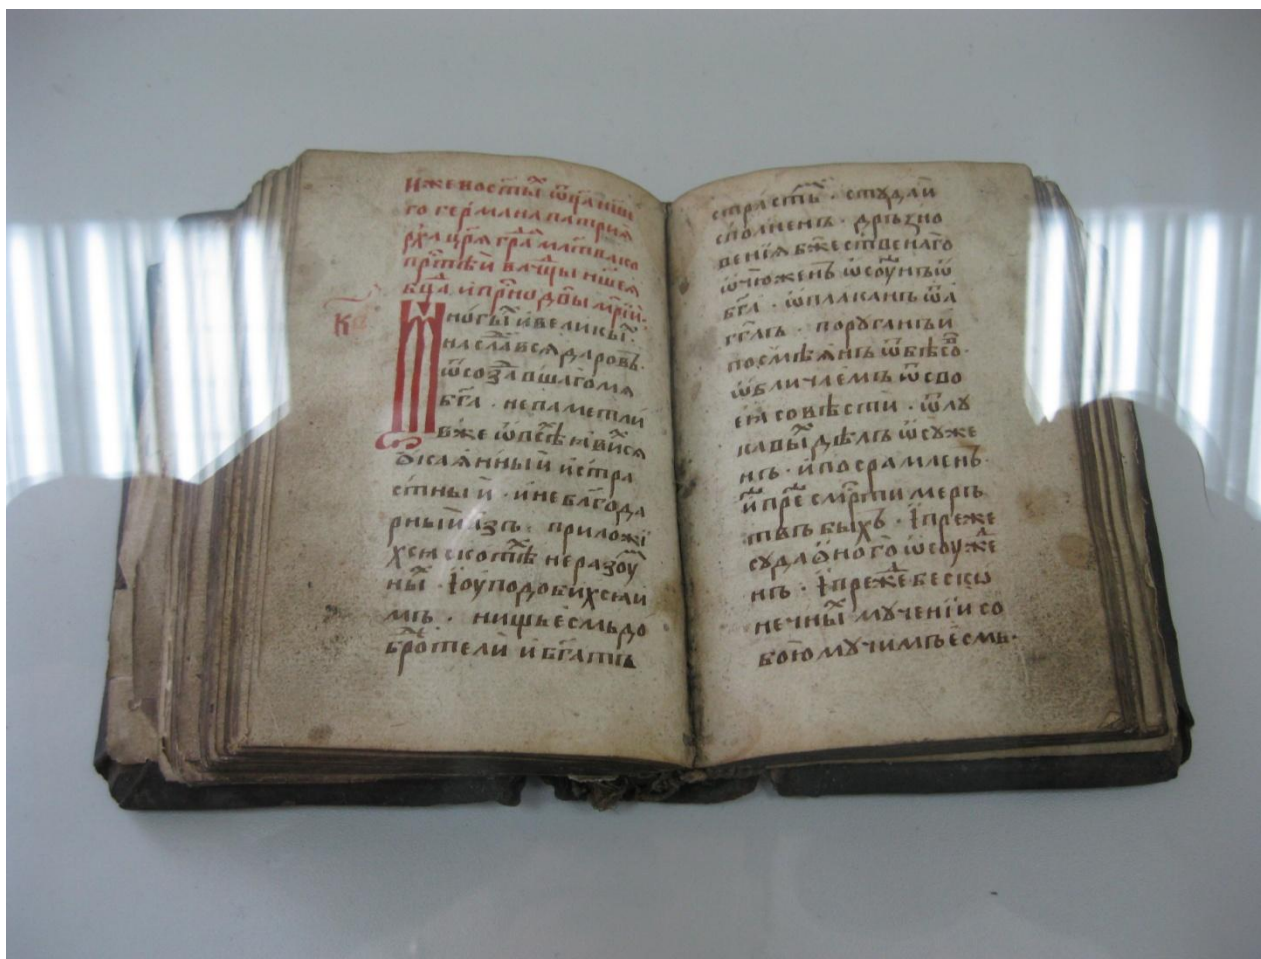 иже во ст҃ы̑ ѿца нш҃е
го германа патрия
рха цр҃я гра̑да мл҃тва ко
прⷭ҇тѣй влⷣчцы нш҃ея
бцⷣа и прⷭ҇но дв҃ы мр҃їи·
Многы̑ и великы̑·
насла̑вся даровъ·
ѿ созда̑вшагомя
бг҃а · непаметли
вже ѿ всѣ̑ ꙗви̑ся
ѹкаянный и стра
стный · и неблагода
рный азъ · приложі
хся ското̑ неразоу̑
ны̑ · і оуподобихся и
мъ · нищь есмь до
бро̑тели и бг҃атъ
страстьⷨ · студа и
сполненъ · дръзно
венїя бж҃ественаго
ѿчюженъ ѿсоунъ ѿ
бг҃а · ѿплаканъ ѿ а
гг҃лъ · поруганъ и
посмѣянъ ѿ бѣсо̑·
ѿбличаемъ ѿ сво
ея совѣсти · ѿ лу
кавы̑ дѣлъ ѿсуже
нъ · и посрамленъ·
и пре̑ смр҃ти мерь
твъ быхъ · і преже
суда ѡного ѿсоуж̑е
нъ · і преж̑е бескѡ
нечны̑ мученїи со
бою мучимъ есмь·
кв